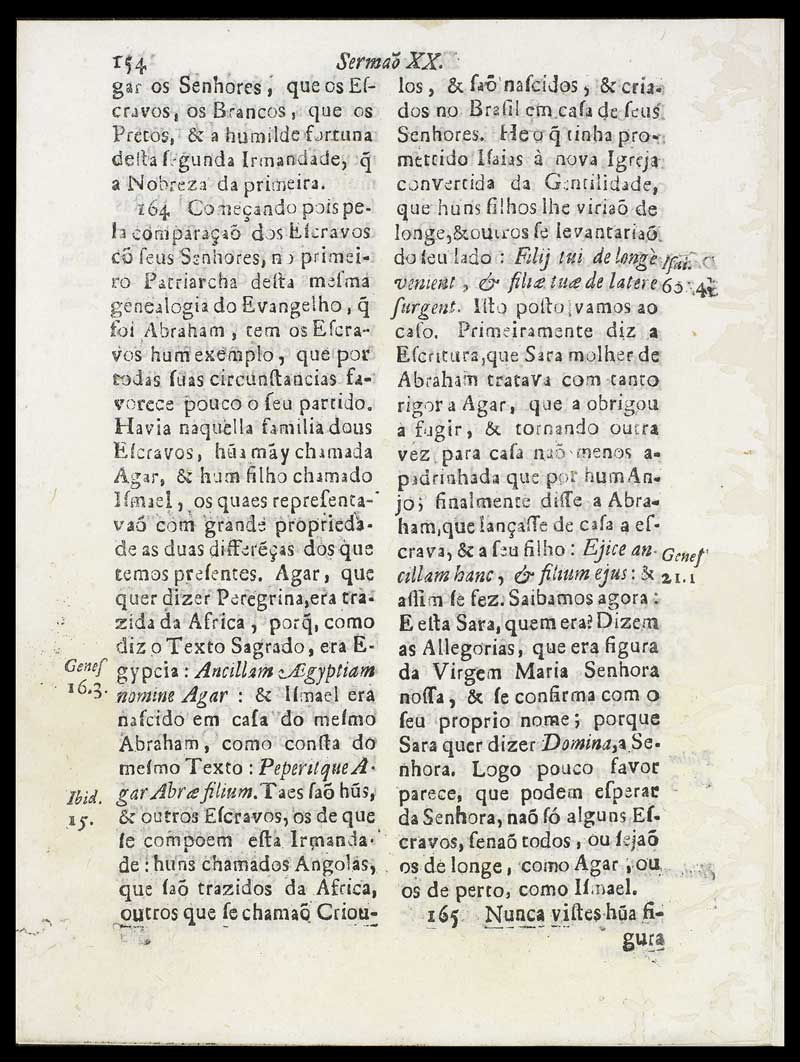 154
Sermaõ XX.
gar os Senhores, que os Eſ-
cravos, os Brancos, que os
Pretos, & a humilde fortuna
deſta ſegunda Irmandade, q̃
a Nobreza da primeira.
164 Começando pois pe-
la comparaçaõ dos Eſcravos
cõ ſeus Senhores, no primei-
ro Patriarcha deſta meſma
genealogia do Evangelho, q̃
foi Abraham, tem os Eſcra-
vos hum exemplo, que por
todas ſuas circunſtancias fa-
vorece pouco o ſeu partido.
Havia naquella familia dous
Eſcravos, hũa mãy chamada
Agar, & hum filho chamado
Iſmael, os quaes repreſenta-
vaõ com grande proprieda-
de as duas differẽças dos que
temos preſentes. Agar, que
quer dizer Peregrina, era tra-
zida da Africa, porq̃, como
diz o Texto Sagrado, era E-
gypcia: Ancillam Ægyptiam
nomine Agar: & Iſmael era
naſcido em caſa do meſmo
Abraham, como conſta do
meſmo Texto: Peperitque A-
gar Abræ filium. Taes ſaõ hũs,
& outros Eſcravos, os de que
ſe compoem eſta Irmanda-
de: huns chamados Angolas,
que ſaõ trazidos da Africa,
outros que ſe chamaõ Criou-
Geneſ
16.3.
Ibid.
15.
los, & ſaõ naſcidos, & cria-
dos no Braſil em caſa de ſeus
Senhores. He o q̃ tinha pro-
mettido Iſaias à nova Igreja
convertida da Gentilidade,
que huns filhos lhe viriaõ de
longe, & outros ſe levantariaõ
do ſeu lado: Filij tui de longè
venient, & filiæ tuæ de latere
ſurgent. Iſto poſto, vamos ao
caſo. Primeiramente diz a
Eſcritura, que Sara molher de
Abraham tratava com tanto
rigor a Agar, que a obrigou
a fugir, & tornando outra
vez para caſa naõ menos a-
padrinhada que por hum An-
jo; finalmente diſſe a Abra-
ham, que lançaſſe de caſa a eſ-
crava, & a ſeu filho: Ejice an-
cillam hanc, & filium ejus: &
aſſim ſe fez. Saibamos agora:
E eſta Sara, quem era? Dizem
as Allegorias, que era figura
da Virgem Maria Senhora
noſſa, & ſe confirma com o
ſeu proprio nome; porque
Sara quer dizer Domina, a Se-
nhora. Logo pouco favor
parece, que podem eſperar
da Senhora, naõ ſó alguns Eſ-
cravos, ſenaõ todos, ou ſejaõ
os de longe, como Agar, ou
os de perto, como Iſmael.
165 Nunca viſtes hũa fi-
gura
Iſai.
60.4.
Geneſ
21.1